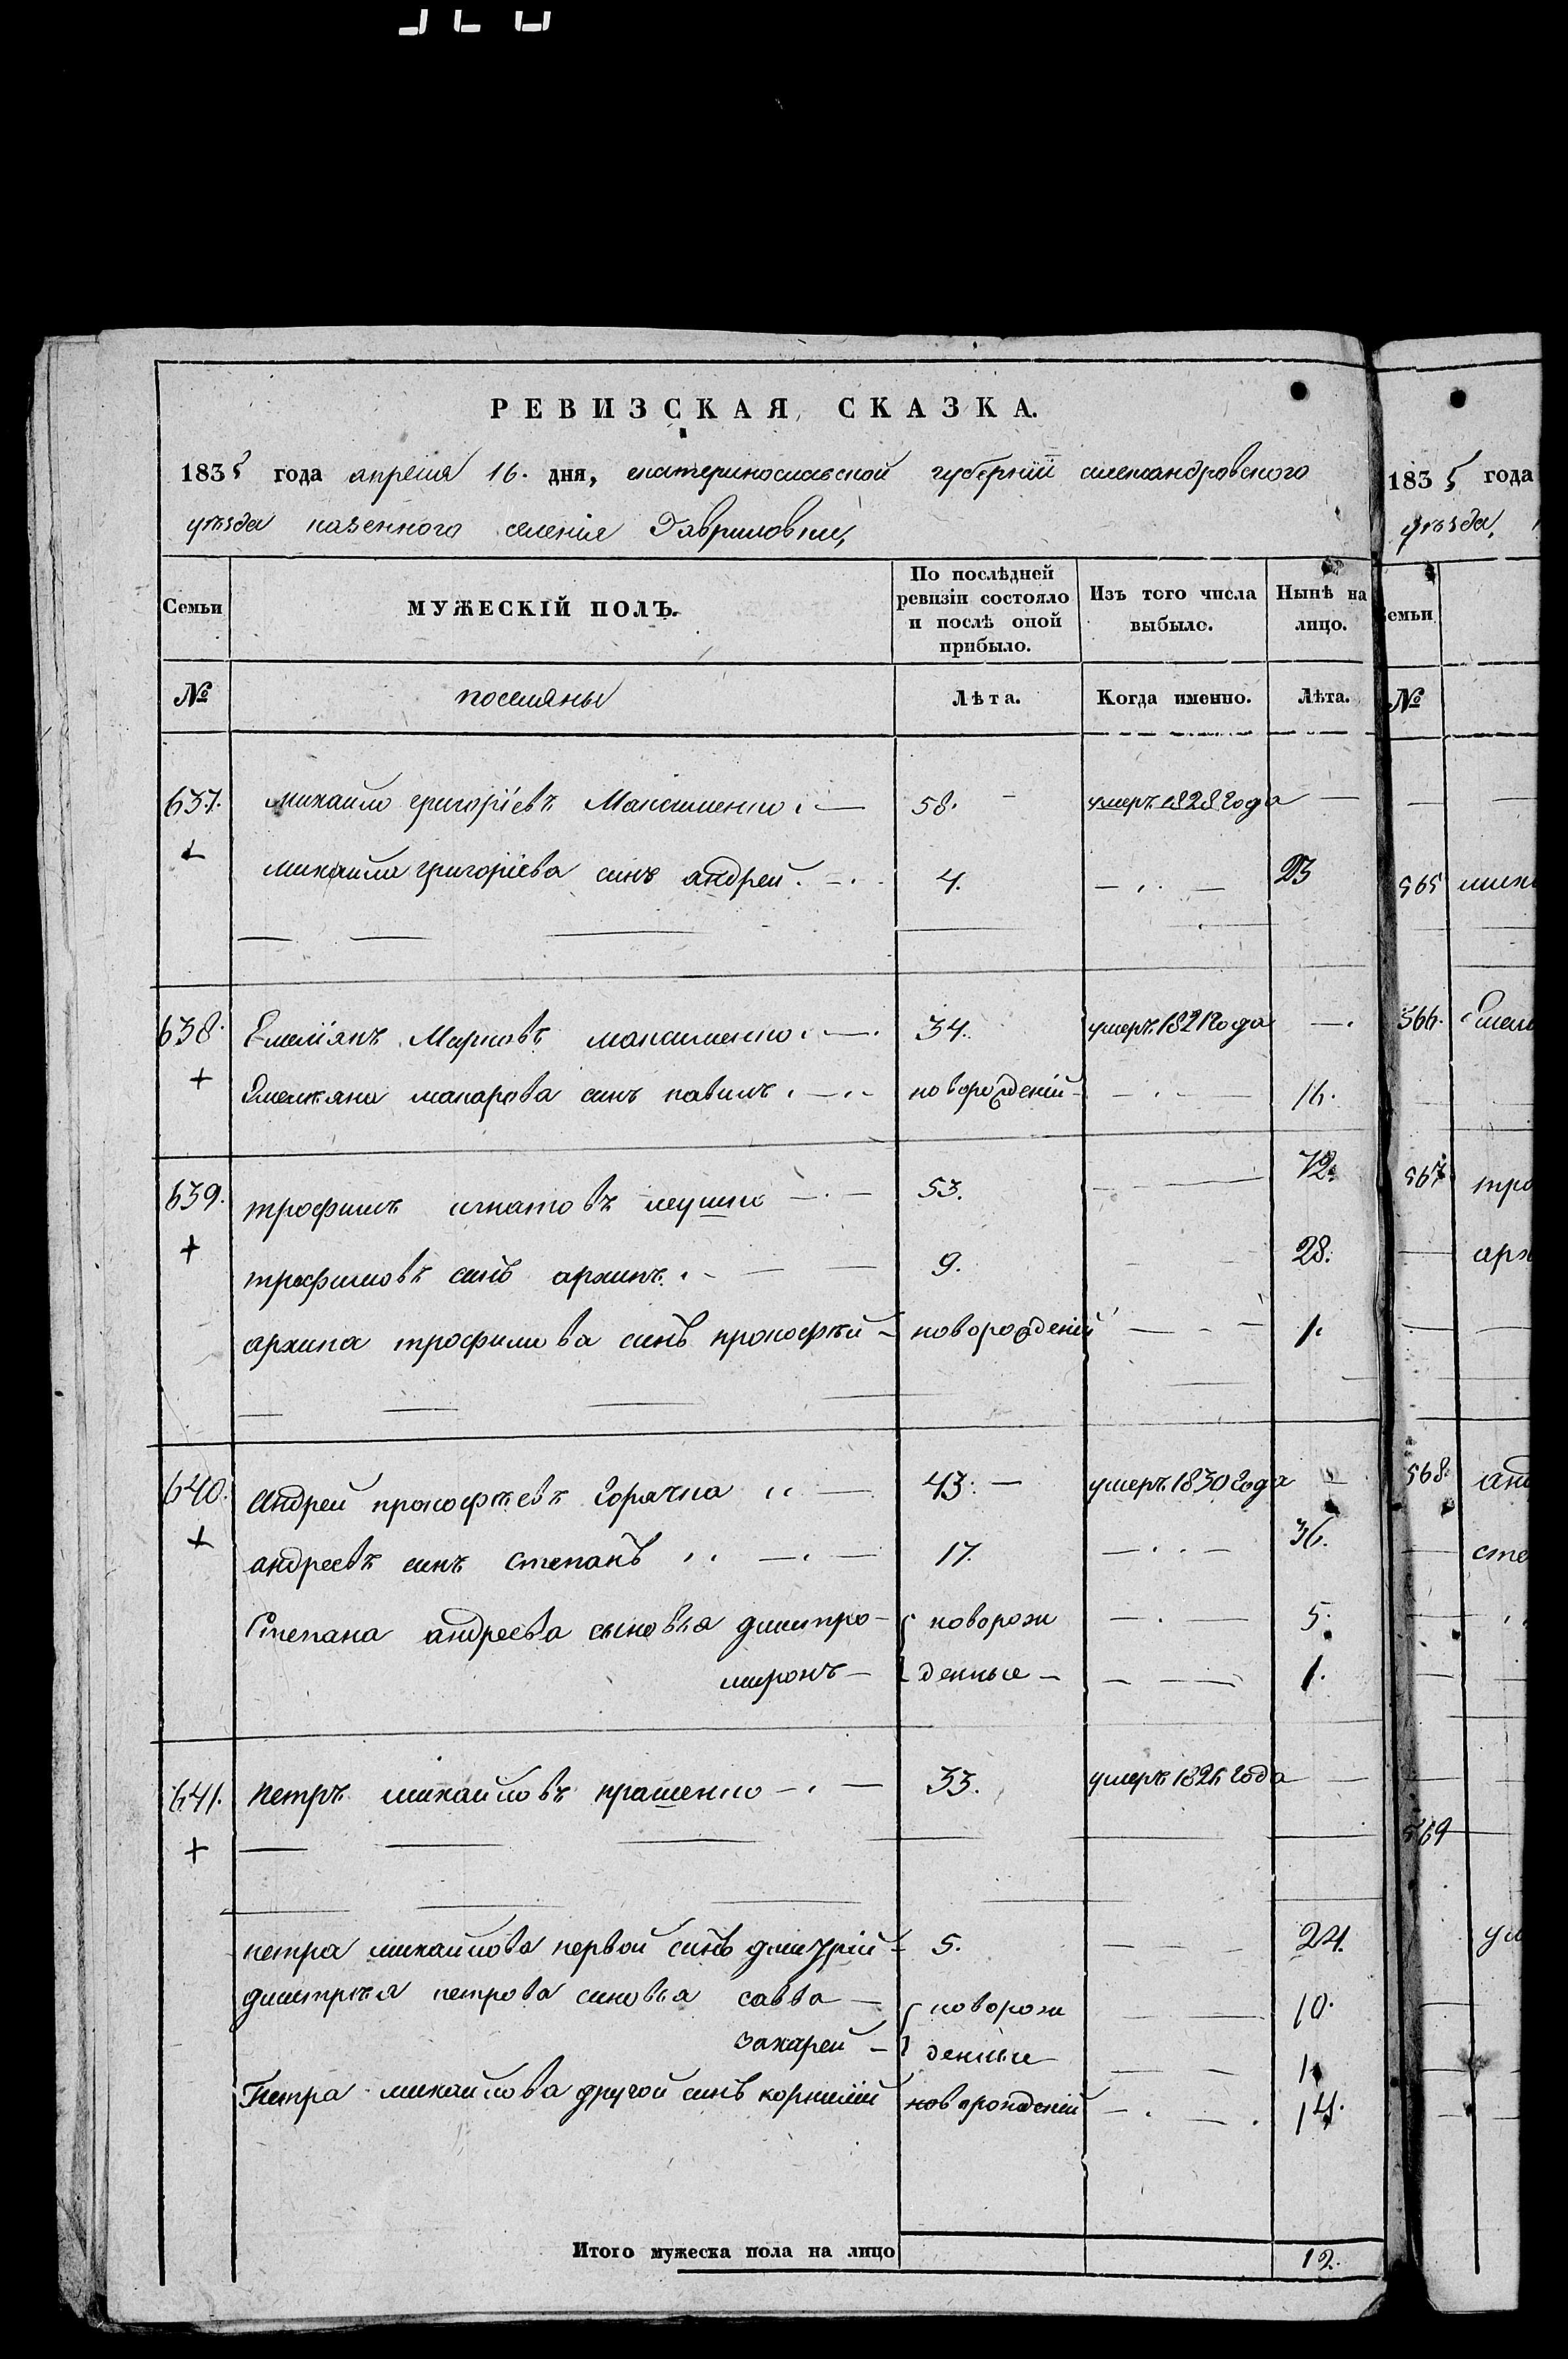 РЕВИЗСКАЯ СКАЗКА.
1835 года апреля 16. дня, екатеринославской губерніи александровского
уѣзда казенного селенія Гавриловки,
Семьи
МУЖЕСКІЙ ПОЛЪ.
По послѣдней ревизіи состояло и послѣ оной прибыло.
Изъ того числа выбыло.
Нынѣ на лицо.
№ поселяны Лѣта. Когда именно. Лѣта.
637. михайло григоріевъ Максименко 58. умеръ 1828 года
михайла григоріева синъ андрей 4. 23
638. Емеліянъ Марковъ максименко 34. умеръ 1821 года
Емельяна макарова синъ павилъ новорожденій 16.
639. трофимъ игнатовъ леушко 53. 72.
трофимовъ синъ архипъ 9. 28.
архипа трофимова синъ прокофѣй новорожденій 1.
640. Андрей прокофѣевъ Горячка 43. умеръ 1830 года
андреевъ синъ степанъ 17. 36.
Степана андреева сыновья дмитро новорож 5.
миронъ денные 1.
641. Петръ михайловъ крашенко 33. умеръ 1826 года
петра михайлова первой синъ дмитрій 5. 24.
дмитрѣя петрова синовья савва новорож 10.
захарей денные 1
Петра михайлова другой синъ корнилій новорожденій 14.
Итого мужеска пола на лицо 12.
1835 года
уѣзда,
Семьи
№
565
566. Емель
567 тро
арх
568. анд
сте
569